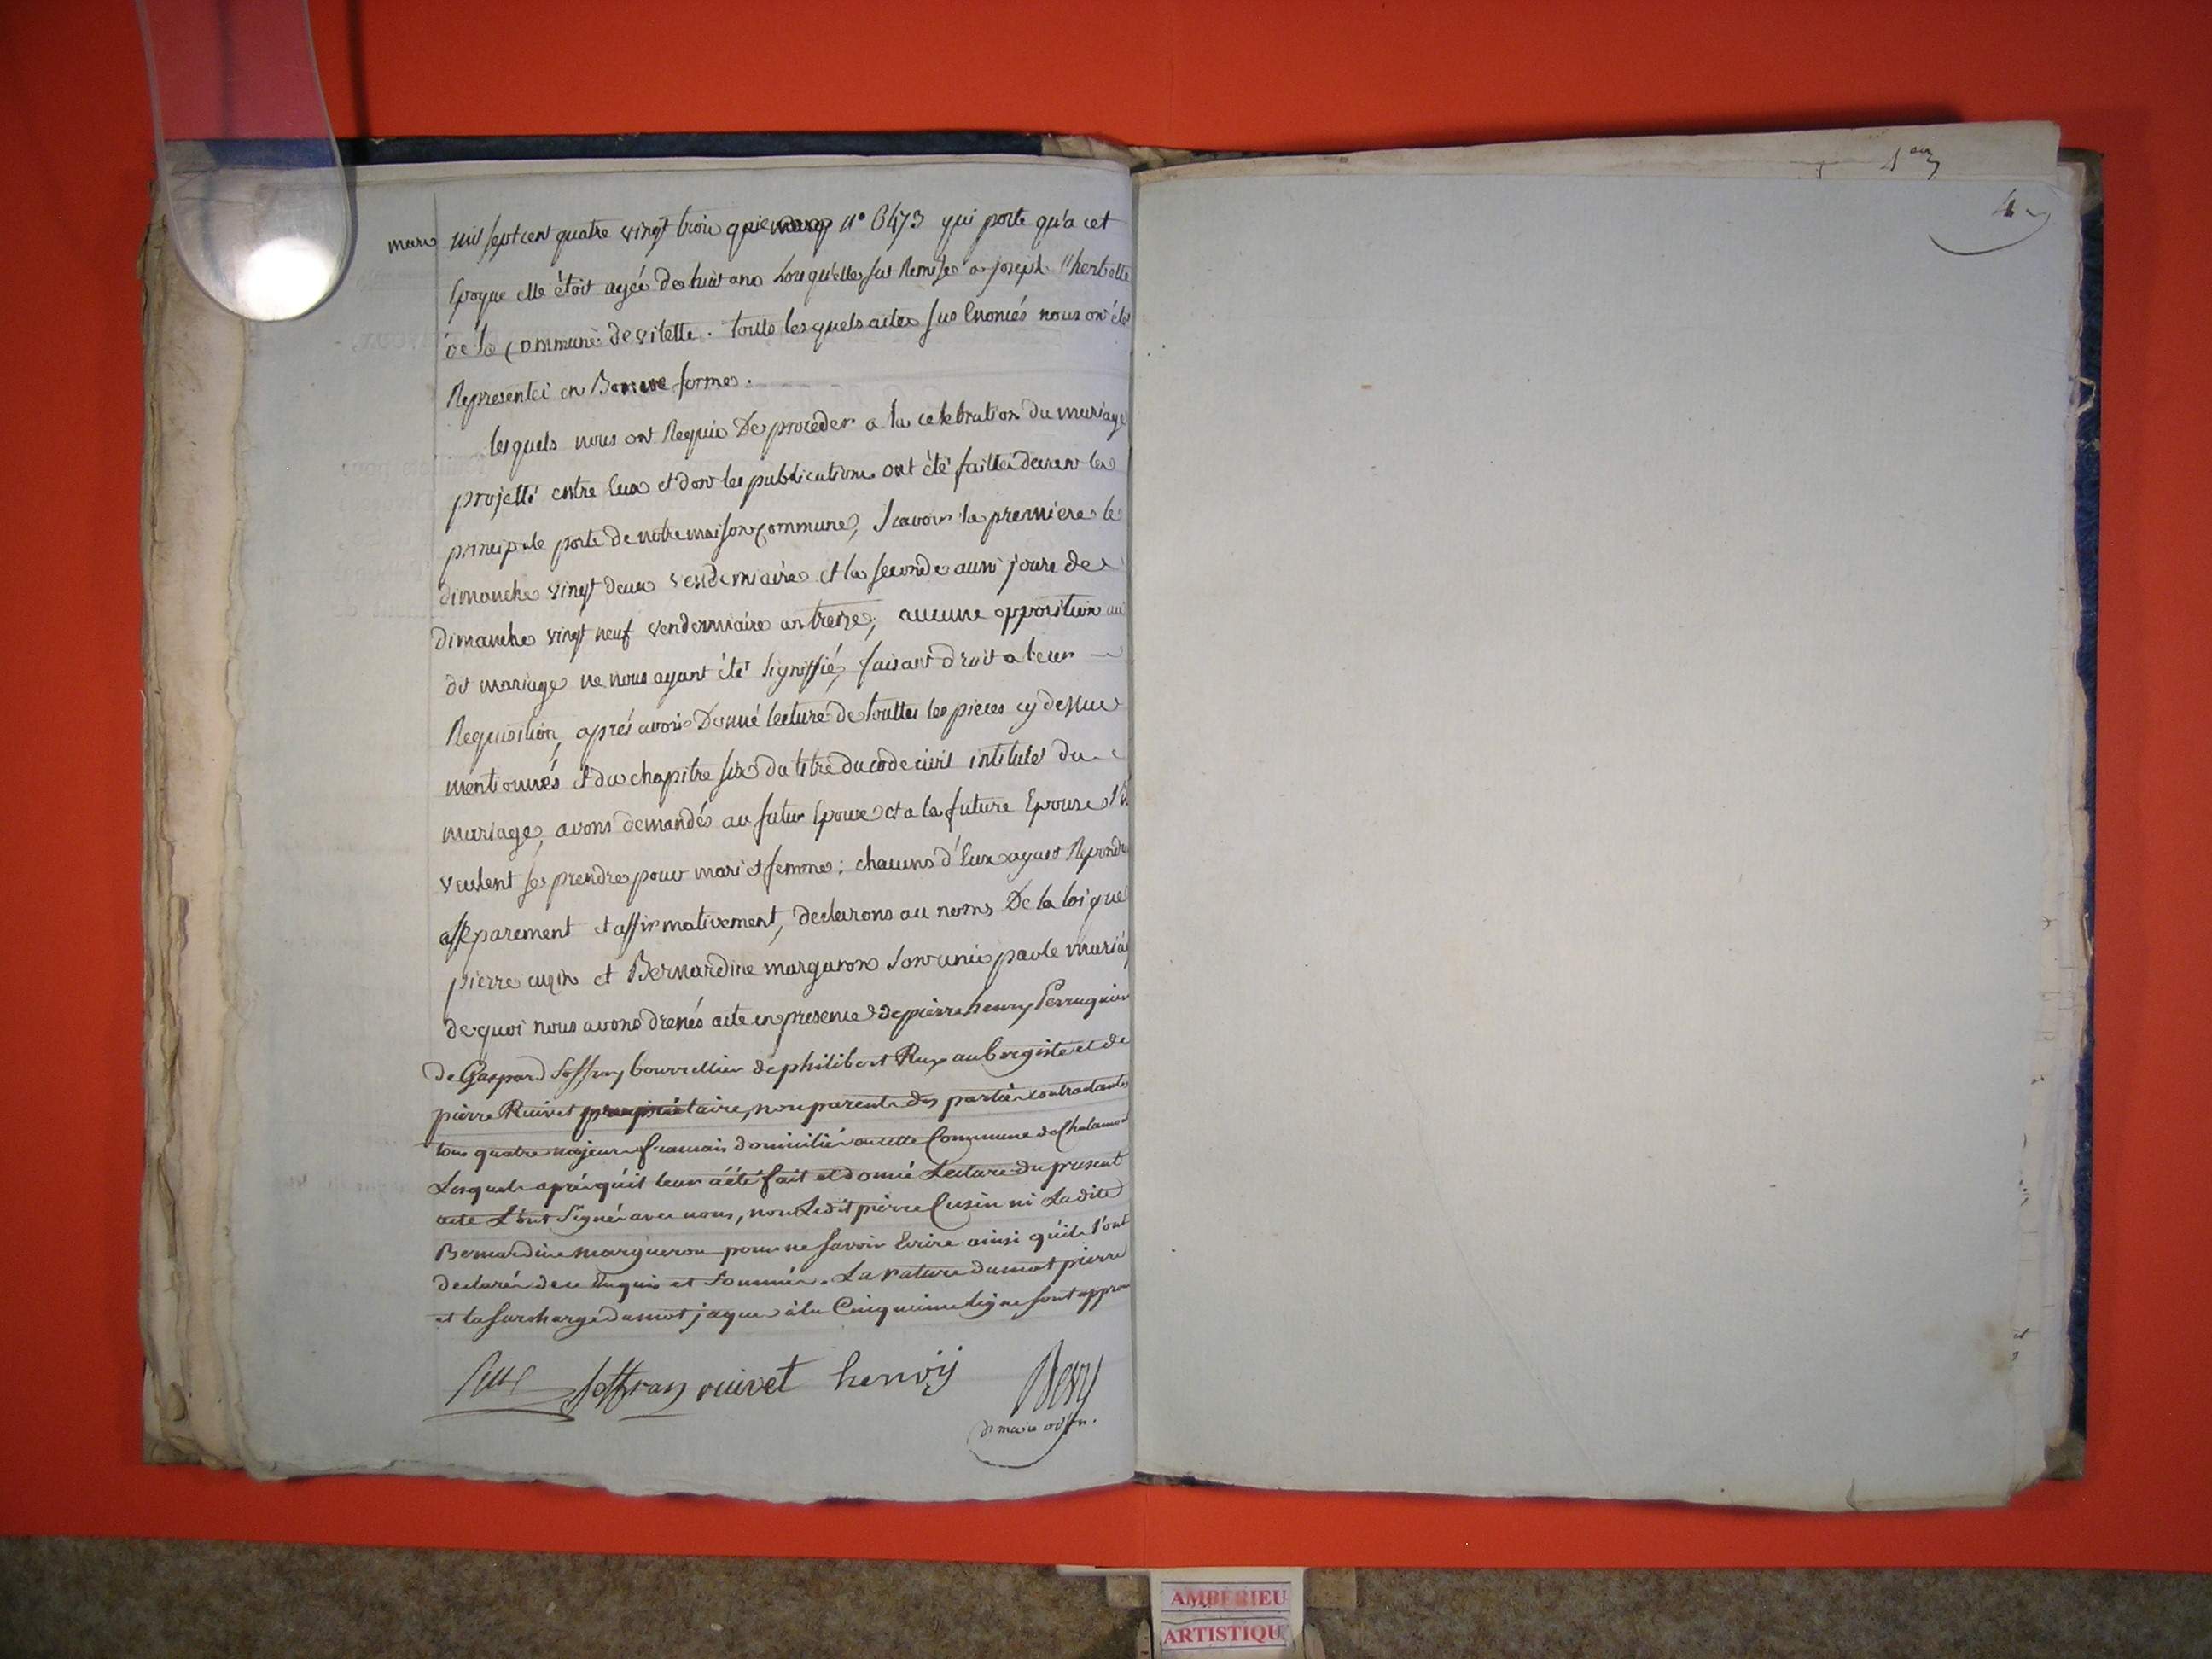 mars mil sept cent quatre vingt trois N° 6473 qui porte qu'a cet
Epoque elle étoit agée de huit ans Lorsqu'elle fut Remise a joseph Lherbette
de la Commune de vilette. toute les quels actes sus Enoncés nous ont été
Representéi en Bonne forme.
lesquels nous ont Requis De proceder a la celebration du mariage
projetté entre Eux et dont les publications ont été faittes devant la
principale porte de notre maison commune, Scavoir la premiere le
dimanche vingt deux vendemiaire et la seconde aussi jours de
dimanche vingt neuf vendermiaire an treize, aucune opposition au
dit mariage ne nous ayant été signiffié, faisant droit a leur
Requisition, aprés avoir Donné lecture de touttes les pieces cy dessus
mentionnés et du chapitre six du titre du code civil intitulé du
mariage, avons demandés au futur Epoux et a la future Epouse s'ils
veulent se prendre pour mari et femme : chacuns d'Eux ayant Repondu
asseparement et affirmativement, declarons au noms De la loi que
pierre cuzin et Bernardine marguron sont unis par le mariage
de quoi nous avons drenés acte en presence de pierre henry Perruquier
de Gaspard Soffray bourrellier de philibert Rux aubergiste et de
pierre Ruivet propriétaire, non parents des parties contractantes
tous quatre majeurs francais domiciliés en cette Commune de Chalamon
Lesquels aprés qu'il leur a été fait et donné Lecture du present
acte L'ont Signés avec nous, non Ledit pierre Cusin ni Ladite
Bernardine Marguerom pour ne savoir Ecrire ainsi qu'ils l'ont
declarés de ce Enquis et Sommés. La rature du mot pierre
et la surcharge du mot jaques à la Cinquieme ligne sont appro
Soffray ruivet henrÿ
4
AMBERIEU
ARTISTIQU